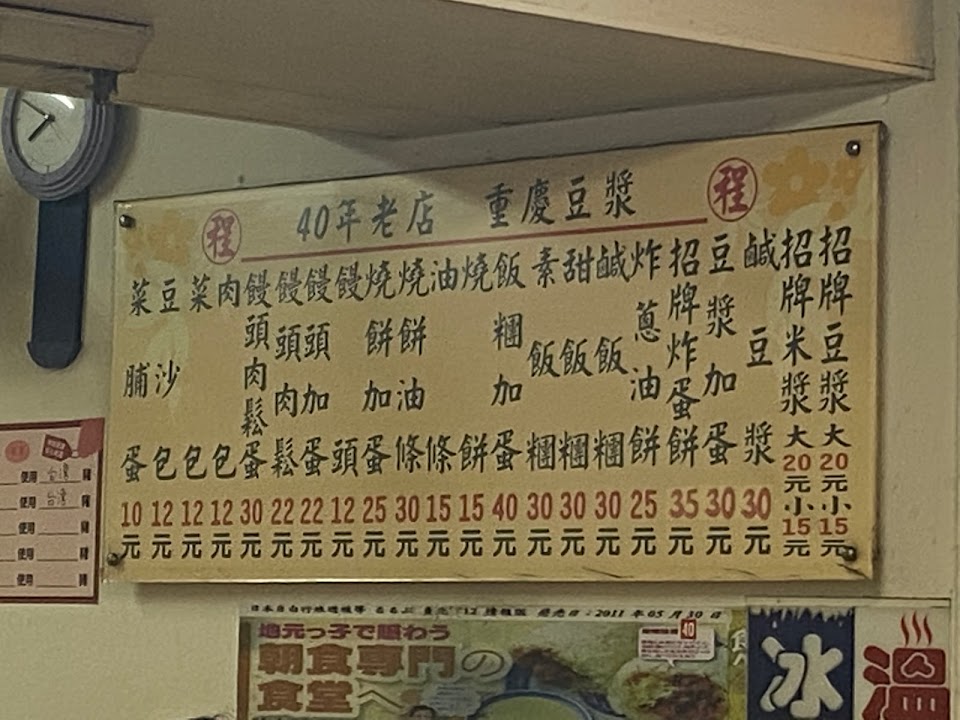 程 40年老店 重慶豆漿 程
招牌豆漿大20元小15元
招牌米漿大20元小15元
鹹豆漿30元
豆漿加蛋30元
招牌炸蛋餅35元
炸蔥油餅25元
鹹飯糰30元
甜飯糰30元
素飯糰30元
飯糰加蛋40元
燒餅15元
油條15元
燒餅油條30元
燒餅加蛋25元
饅頭12元
饅頭加蛋22元
饅頭肉鬆22元
饅頭肉鬆蛋30元
肉包12元
菜包12元
豆沙包12元
菜脯蛋10元
使用 台灣 豬
使用 台灣 豬
使用 豬
使用 豬
使用 豬
2011年05月30日
地元っ子で賑わう
朝食専門の
食堂へ
40
冰
溫